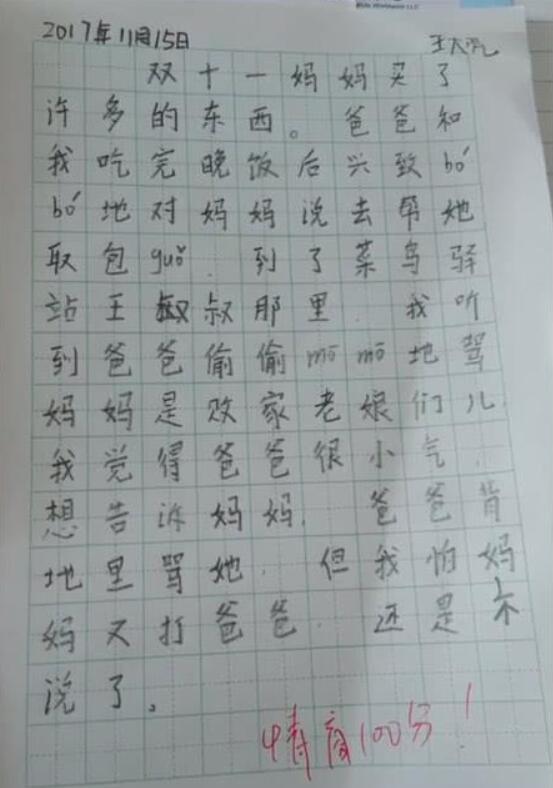 2017年11月15日
王大亮
双十一妈妈买了
许多的东西。爸爸和
我吃完晚饭后兴致bó
bó地对妈妈说去帮她
取包guǒ.到了菜鸟驿
站王叔叔那里.我听
到爸爸偷偷mō mō地骂
妈妈是败家老娘们儿.
我觉得爸爸很小气.
想告诉妈妈.爸爸背
地里骂她.但我怕妈
妈又打爸爸.还是不
说了。
情商100分！